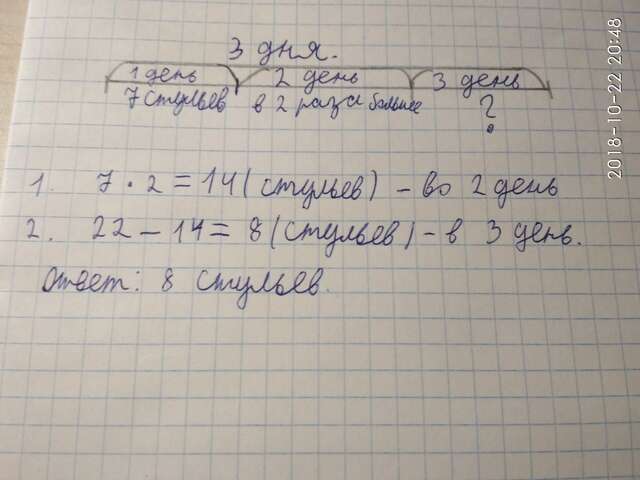 3 дня.
1 день 2 день 3 день
7 стульев в 2 раза больше ?
1. 7 · 2 = 14 (стульев) – во 2 день
2. 22 – 14 = 8 (стульев) – в 3 день.
Ответ: 8 стульев.
2018-10-22 20:48